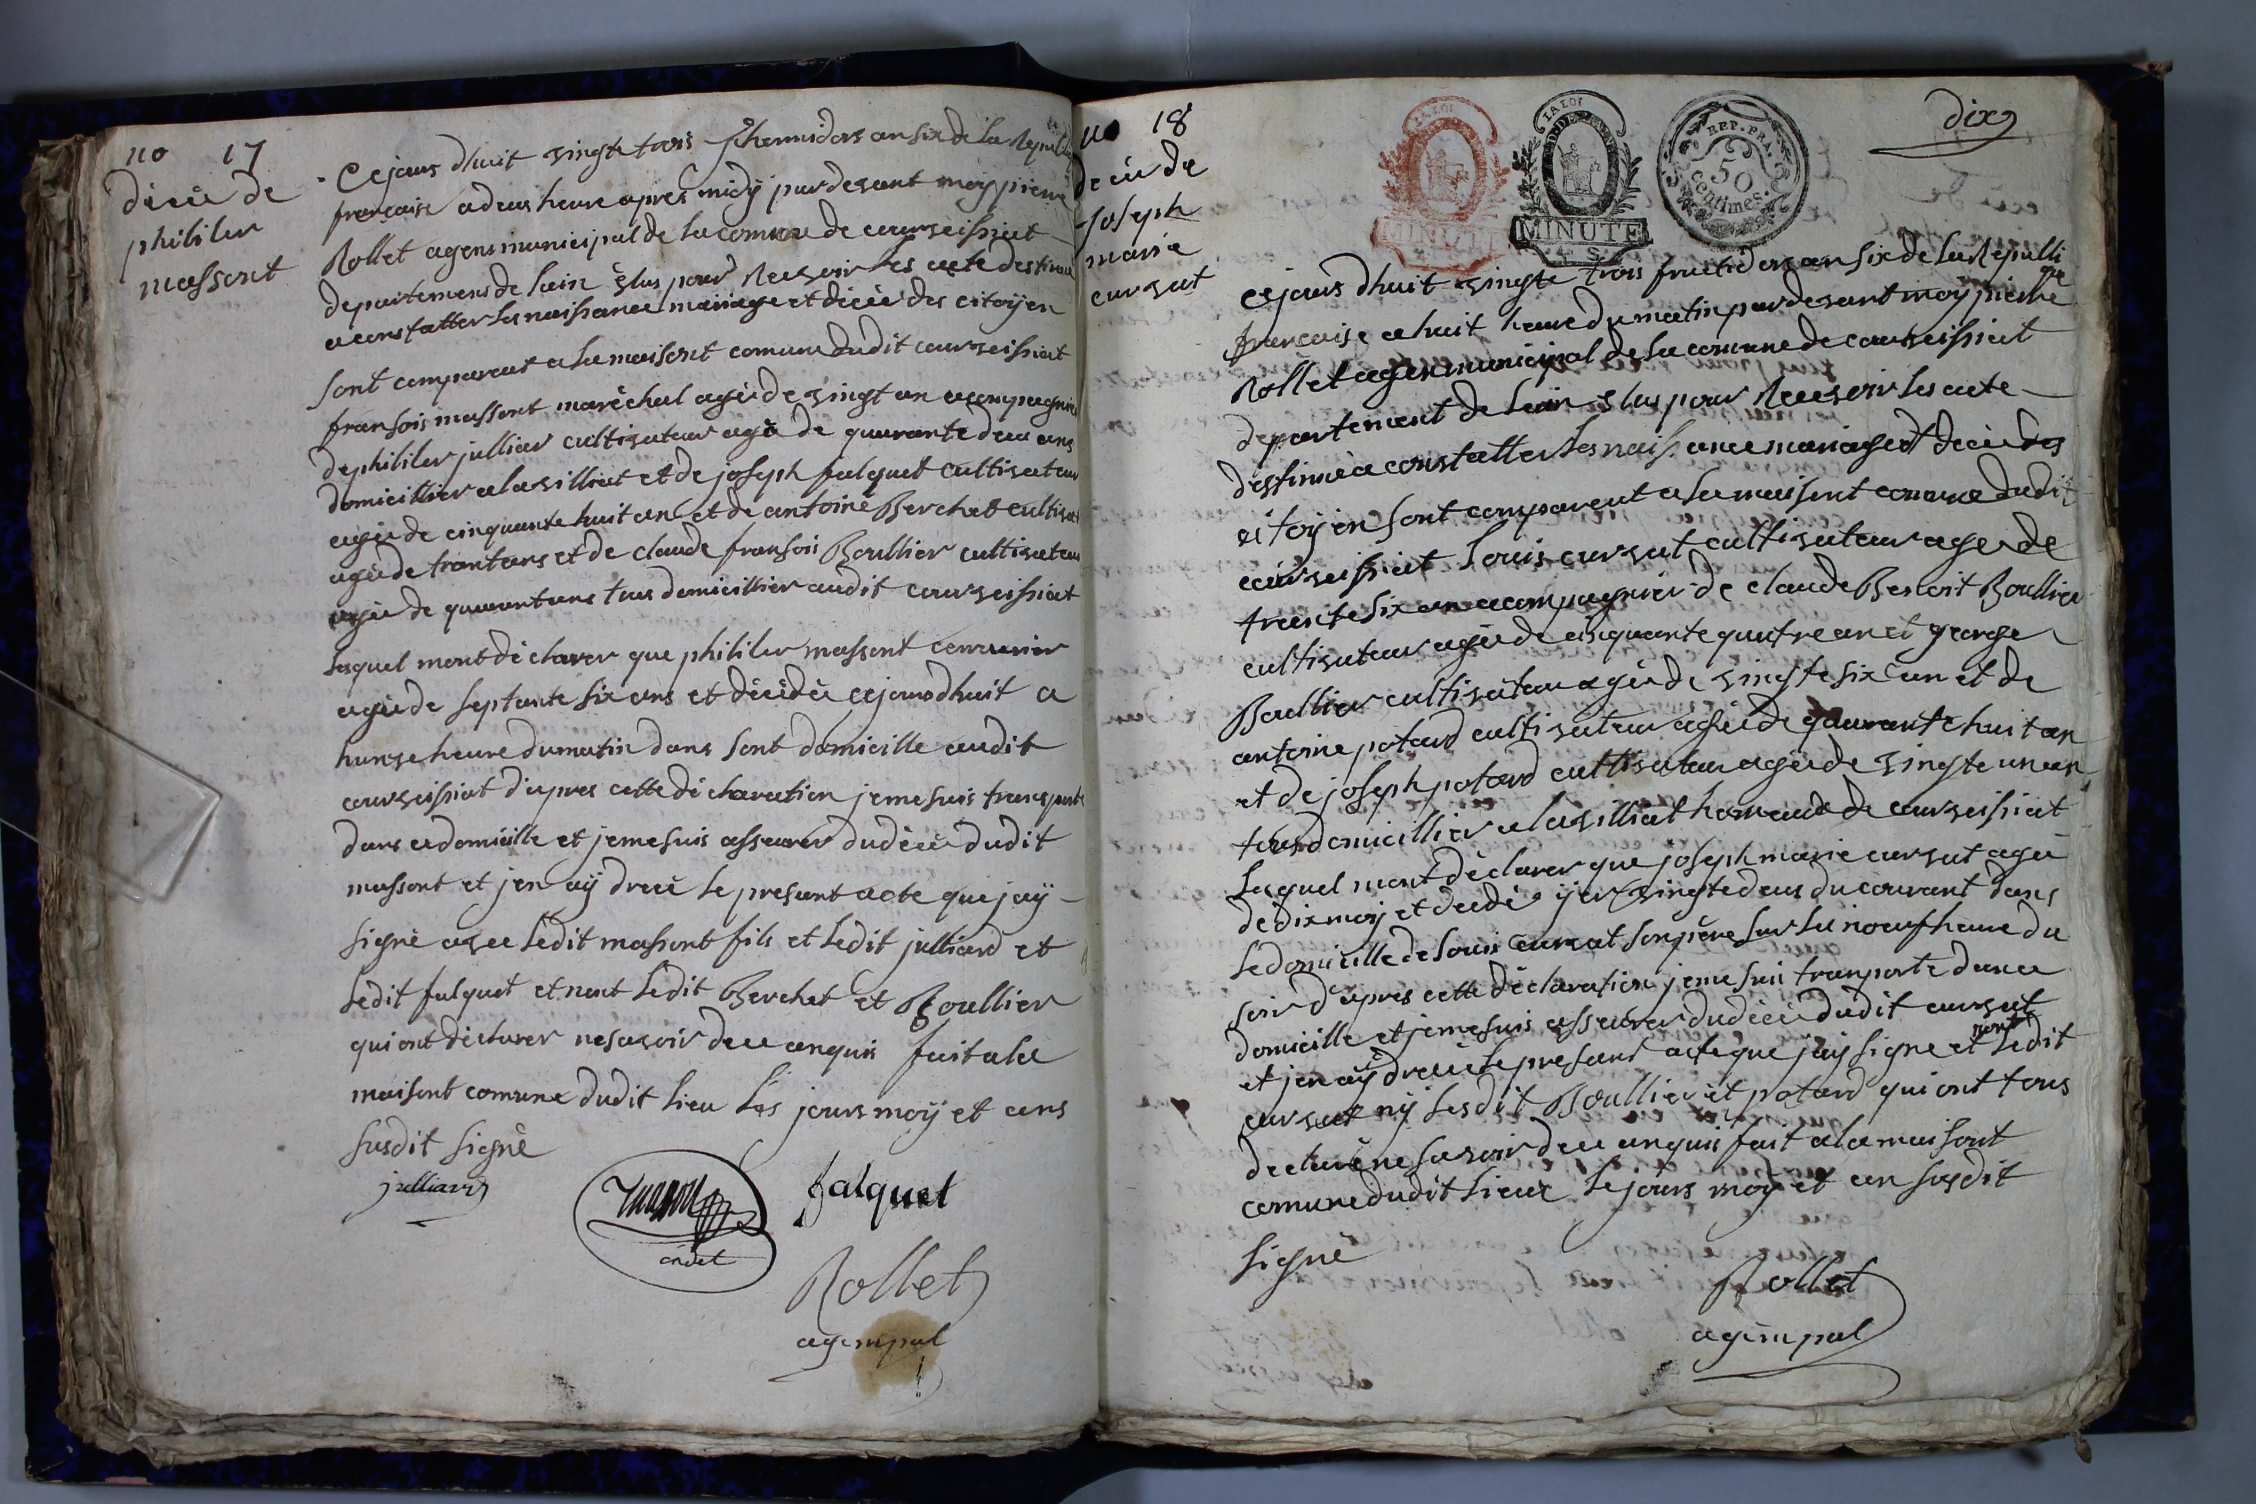 no 17
décée de
philiber
massont
Ce jours dhuit vingte trois thermidors an six de la Republi
francaise a deus heure apres midÿ pardevant moy pierre
Rollet agens municipal de la comune de courveissiat
departemens de lain élus pour Recevoir les acte destinee
a constatter les naissance mariage et décée des citoÿen
sont comparaut a la maisont comune dudit courveissiat
fransois massont maréchal agée de vingt an acompagnier
de philiber julliar cultivateur agé de quarante deu ans
domicillier a lavilliat et de joseph falquet cultivateur
agée de cinquante huit an et de antoine Berchet cultivat
agée de trantans et de claude fransois Boullier cultivateur
agée de quarantans tous domicillier audit courveissiat
lesquel mont déclarer que philiber massont
agée de septante six ans et décédée ce jourdhuit a
hunse heure du matin dans sont domicille audit
courveissiat dapres cette déclaration je me suis transporte
dans ce domicille et je me suis asseurer du décée dudit
massont et jen aÿ drecé le presant acte que jaÿ
signé avec ledit massont fils et ledit julliard et
ledit falquet et nont ledit Berchet et Boullier
qui ont déclarer ne savoir de ce anquis fait a la
maisont comune dudit lieu les jours moÿ et ans
susdit signé
julliard
masson
cadet
falquet
Rollet
agempal
no 18
decée de
joseph
marie
cursat
dix
LA LOI
MINUTE
LA LOI
MINUTE
REP. FRA.
50
centimes.
ce jours dhuit vingte trois fructidors an six de la Republi
que
francaise a huit heure du matin pardevant moÿ pierre
Rollet agen municipal de la comune de courveissiat
departement de lain élus pour Recevoir les acte
destinée a constatter les naissance mariage et decée des
citoÿen sont comparent a la maisont comune dudit
courveissiat louis cursat cultivateur age de
trante six an acompagnier de claude Benoit Boullier
cultivateur agée de cinquante quatre an et george
Boullier cultivateur agée de vingte six an et de
antoine potard cultivateur agée de quarante huit an
et de joseph potard cultivateur agée de vingte un an
tous domicillier a lavilliat hameaux de courveissiat
lesquel mont déclarer que joseph marie cursat agée
de dix moÿ et decedé ÿer vingte deus du courant dans
le domicille de louis cursat son père sur les noeuf heure du
soir dapres cette déclaration je me suis transporte dan ce
domicille et je me suis asseurer du décée dudit cursat
et jen aÿ drecé le presant acte que jaÿ signe et nont ledit
cursat nÿ lesdit Boullier et potard qui ont tous
declaré ne savoir de ce anquis fait a la maisont
comune dudit lieux le jours moÿ et an susdit
signé
Rollet
agempal